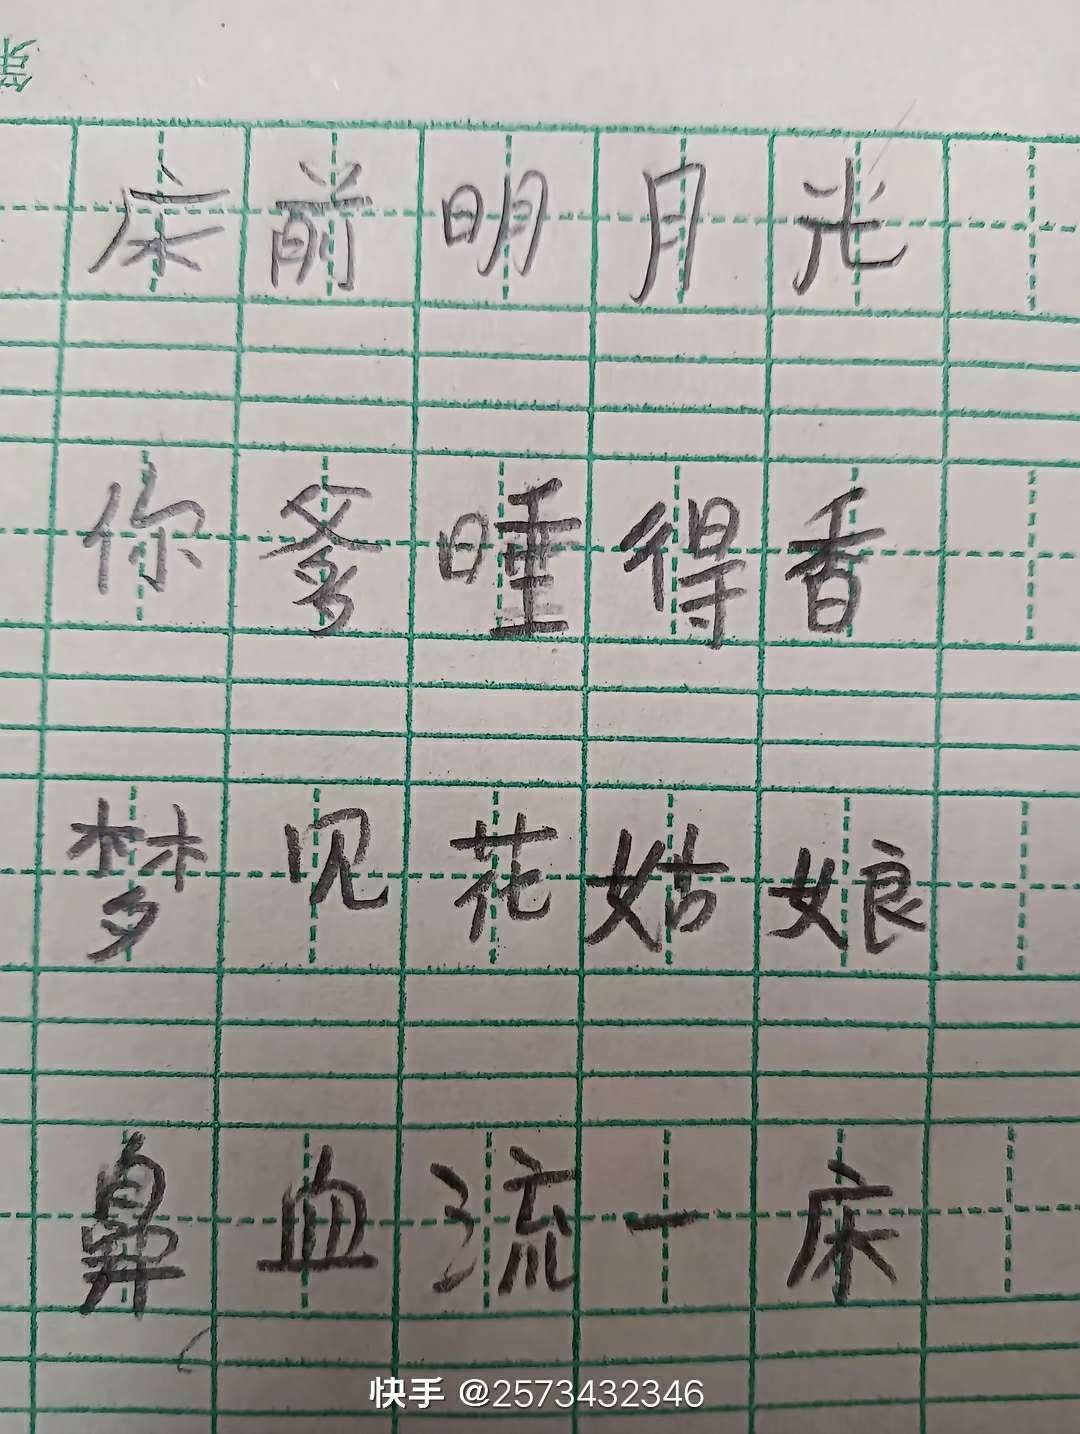 第
床前明月光
你爹睡得香
梦见花姑娘
鼻血流一床
快手 @2573432346